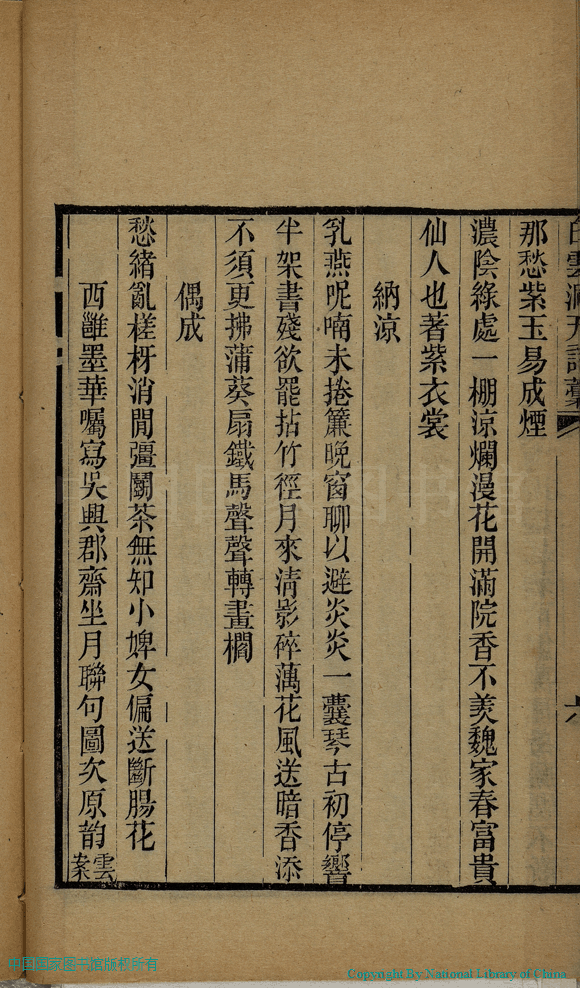 白雲洞天詩藁
六
那愁紫玉易成煙
濃陰綠處一棚涼爛漫花開滿院香不羨魏家春富貴
仙人也著紫衣裳
納涼
乳燕呢喃未捲簾晚窗聊以避炎炎一囊琴古初停響
半架書殘欲罷拈竹徑月來清影碎藕花風送暗香添
不須更拂蒲葵扇鐵馬聲聲轉畫櫩
偶成
愁緒亂槎枒消閒彊鬬茶無知小婢女偏送斷腸花
西雝墨華囑寫吳興郡齋坐月聯句圖次原韵雲
案
中国国家图书馆版权所有
Copyright By National Library of China